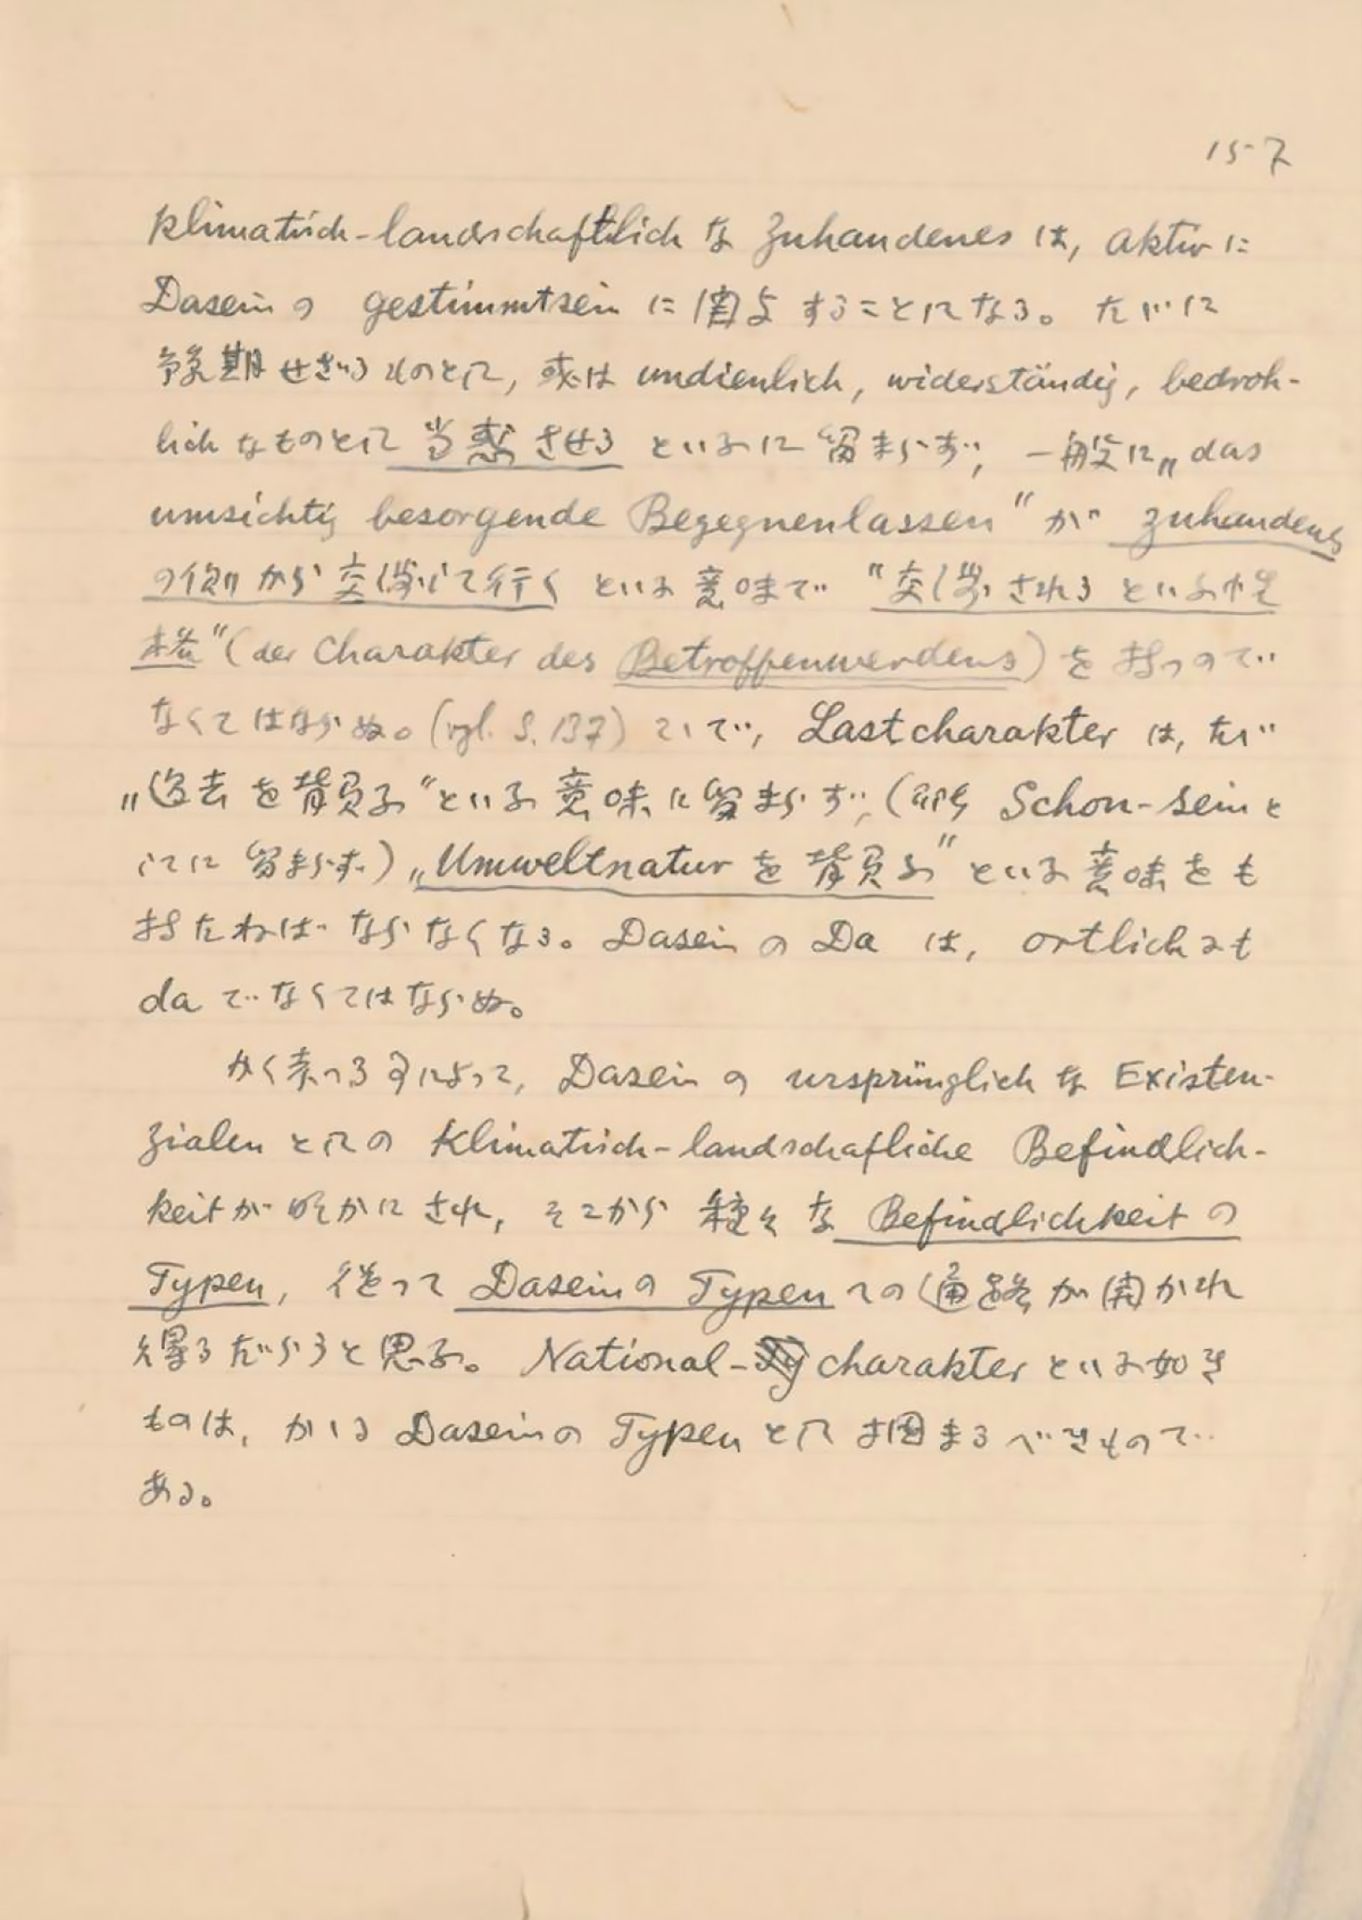 15-7
klimatisch-landschaftlich な Zuhandenes は, aktiv に
Dasein の gestimmtsein に関与することになる。たゞに
予期せざるものとして, 或は undienlich, widerständig, bedroh-
lich なものとして当惑させるといふに留まらず, 一般に „das
umsichtig besorgende Begegnenlassen“ が zuhandenes
の側から交渉して行くといふ意味で “交渉されるといふ性
格” (der Charakter des Betroffenwerdens) を持つので
なくてはならぬ。(vgl. S. 137) そこで, Lastcharakter は, たゞ
„過去を背負ふ“ といふ意味に留まらず, (即ち Schon-sein と
に留まらず) „Umweltnatur を背負ふ“ といふ意味をも
持たねばならなくなる。Dasein の Da は, ortlich にも
da でなくてはならぬ。
かく考へる事によって, Dasein の ursprünglich な Existen-
zialen としての klimatisch-landschafliche Befindlich-
keit が明かにされ, そこから種々な Befindlichkeit の
Typen, 従って Dasein の Typen への通路が開かれ
得るだらうと思ふ。National-charakter といふ如き
ものは, かゝる Dasein の Typen として掴まるべきもので
ある。